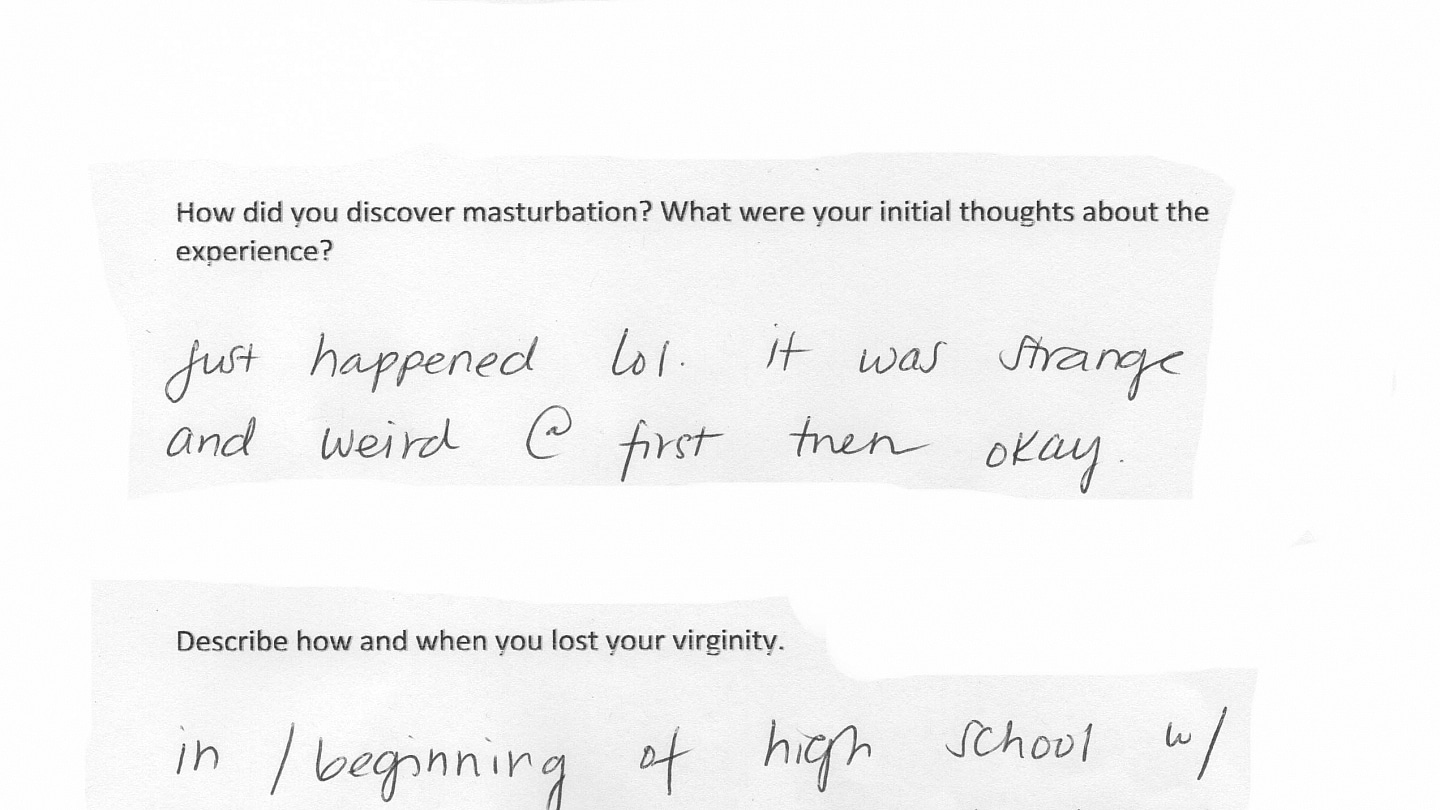 How did you discover masturbation? What were your initial thoughts about the
experience?
Just happened lol. it was strange
and weird @ first then okay.
Describe how and when you lost your virginity.
in / beginning of high school w/